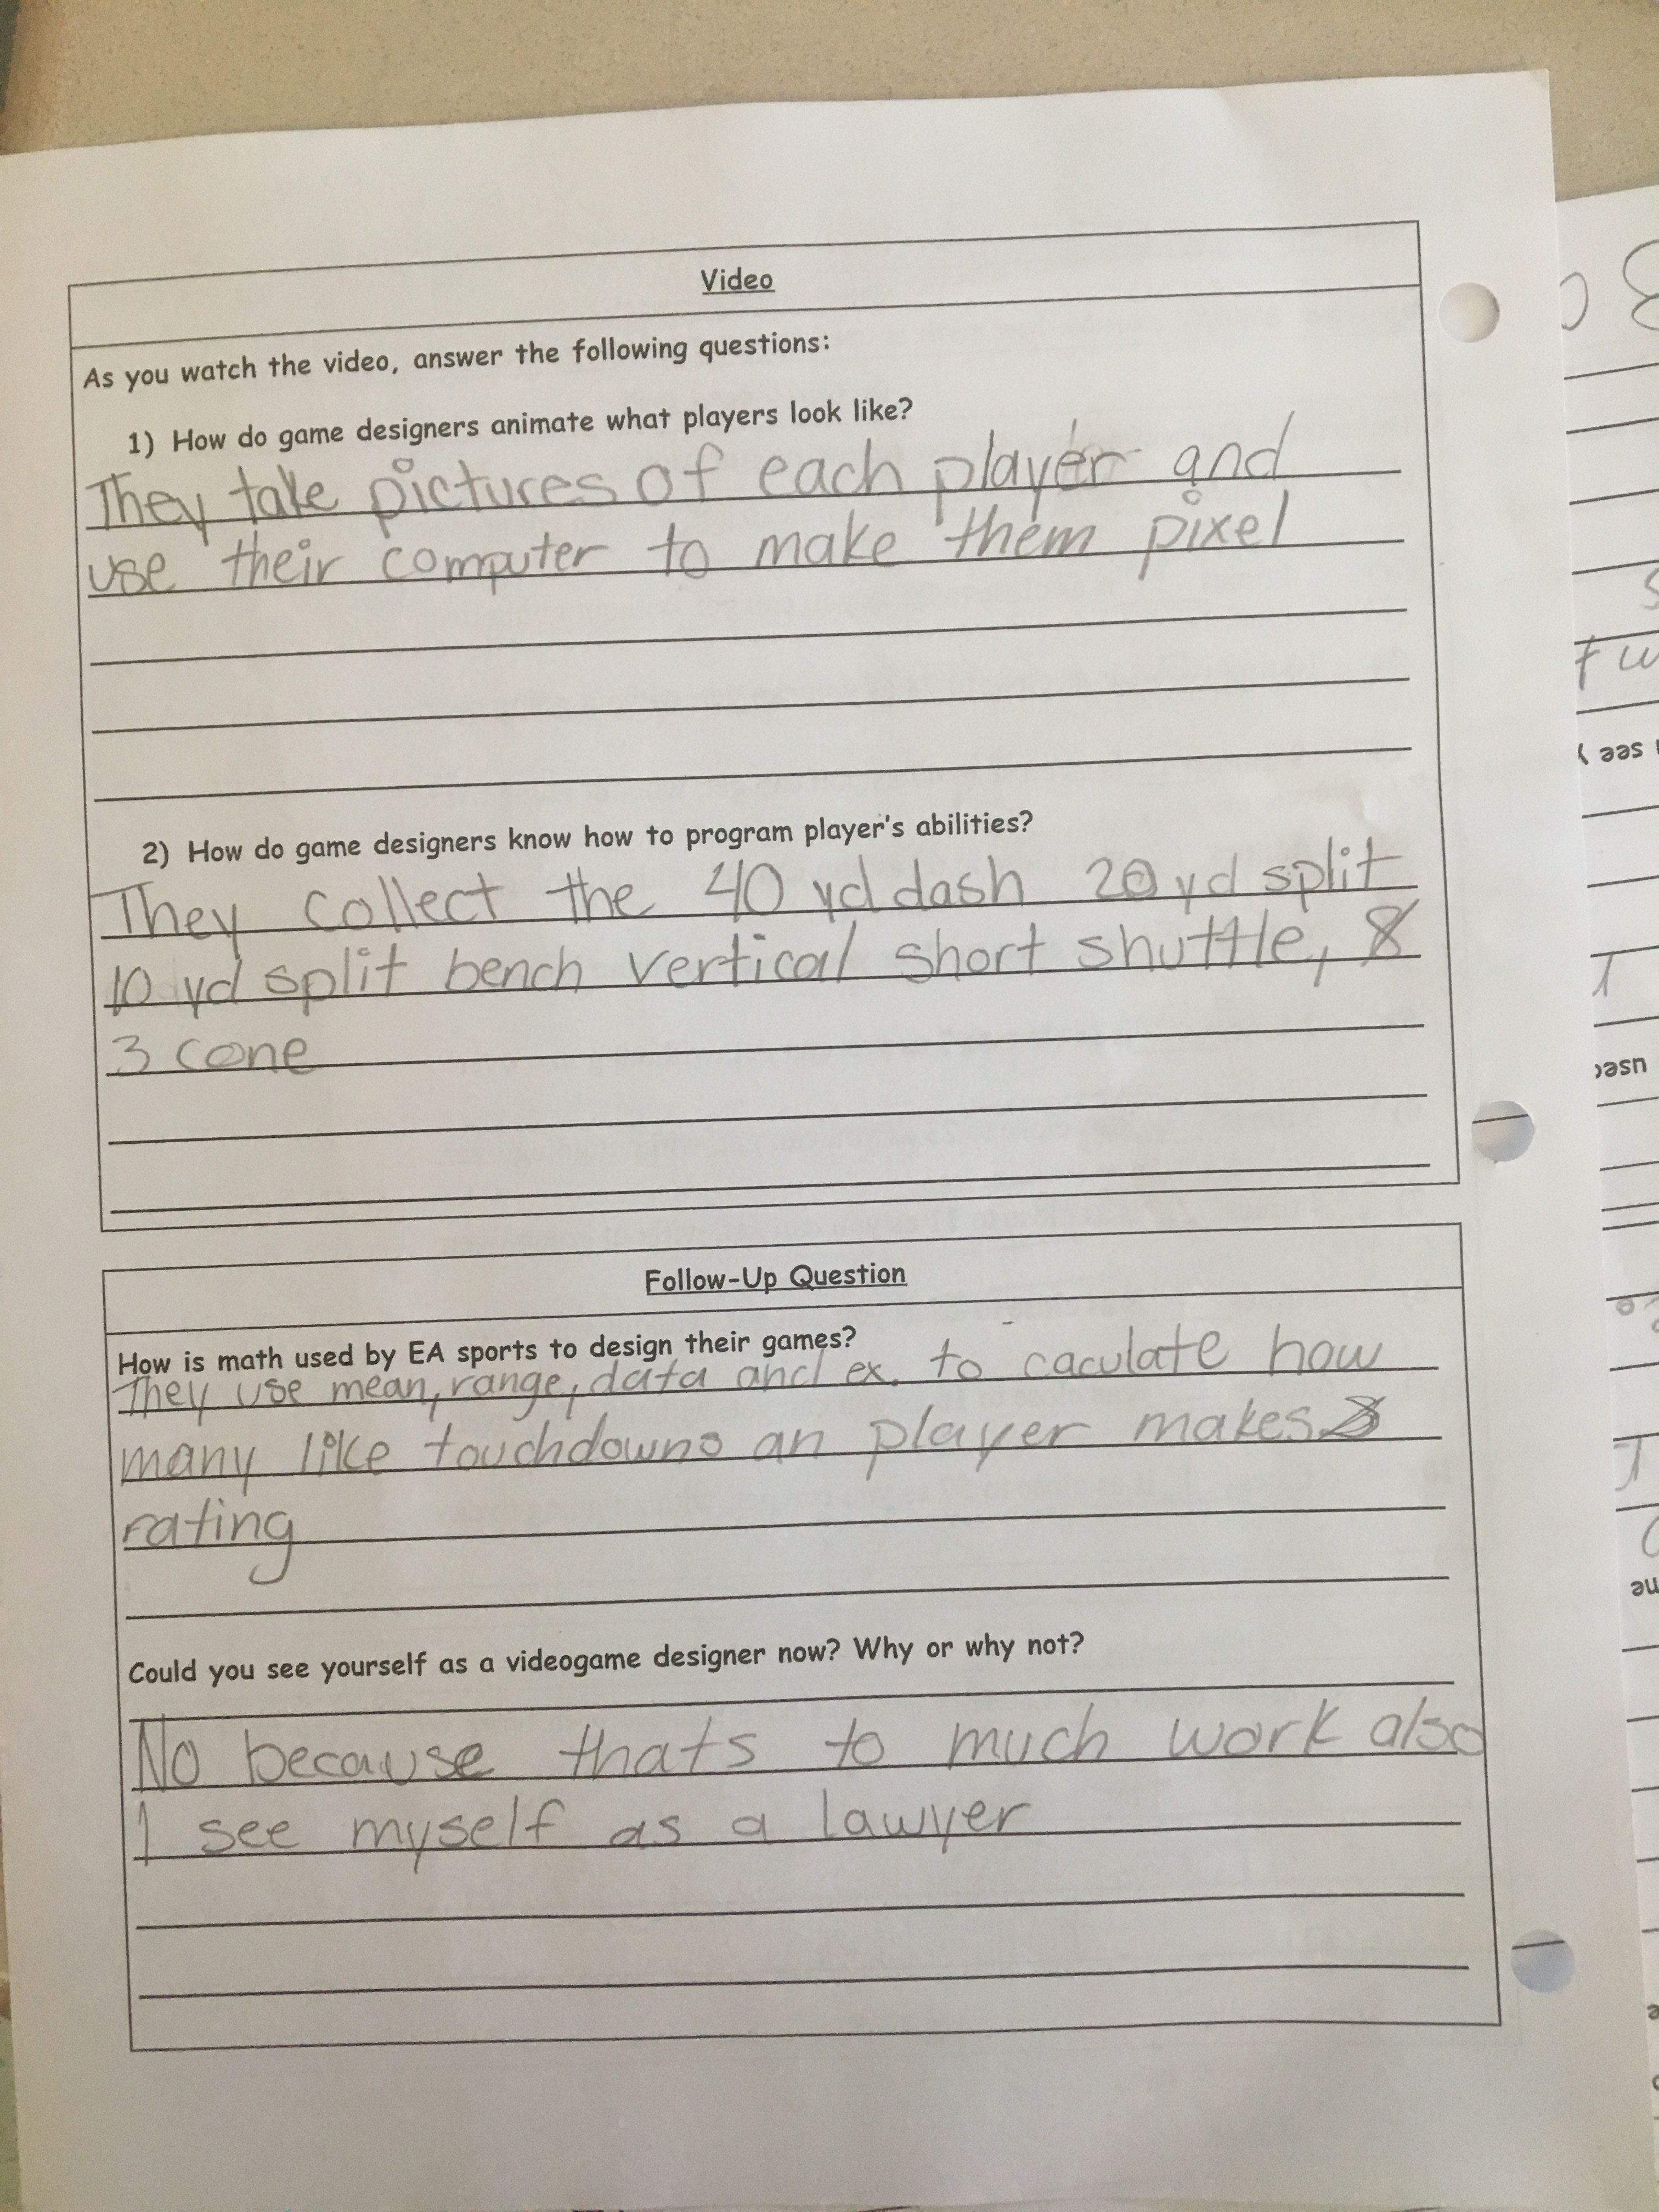 Video
As you watch the video, answer the following questions:
1) How do game designers animate what players look like?
They take pictures of each player and
use their computer to make them pixel
2) How do game designers know how to program player's abilities?
They collect the 40 yd dash 20 yd split
10 yd split bench vertical short shuttle, &
3 cone
Follow-Up Question
How is math used by EA sports to design their games?
They use mean, range, data and ex. to caculate how
many like touchdowns an player makes &
rating
Could you see yourself as a videogame designer now? Why or why not?
No because thats to much work also
I see myself as a lawyer
see